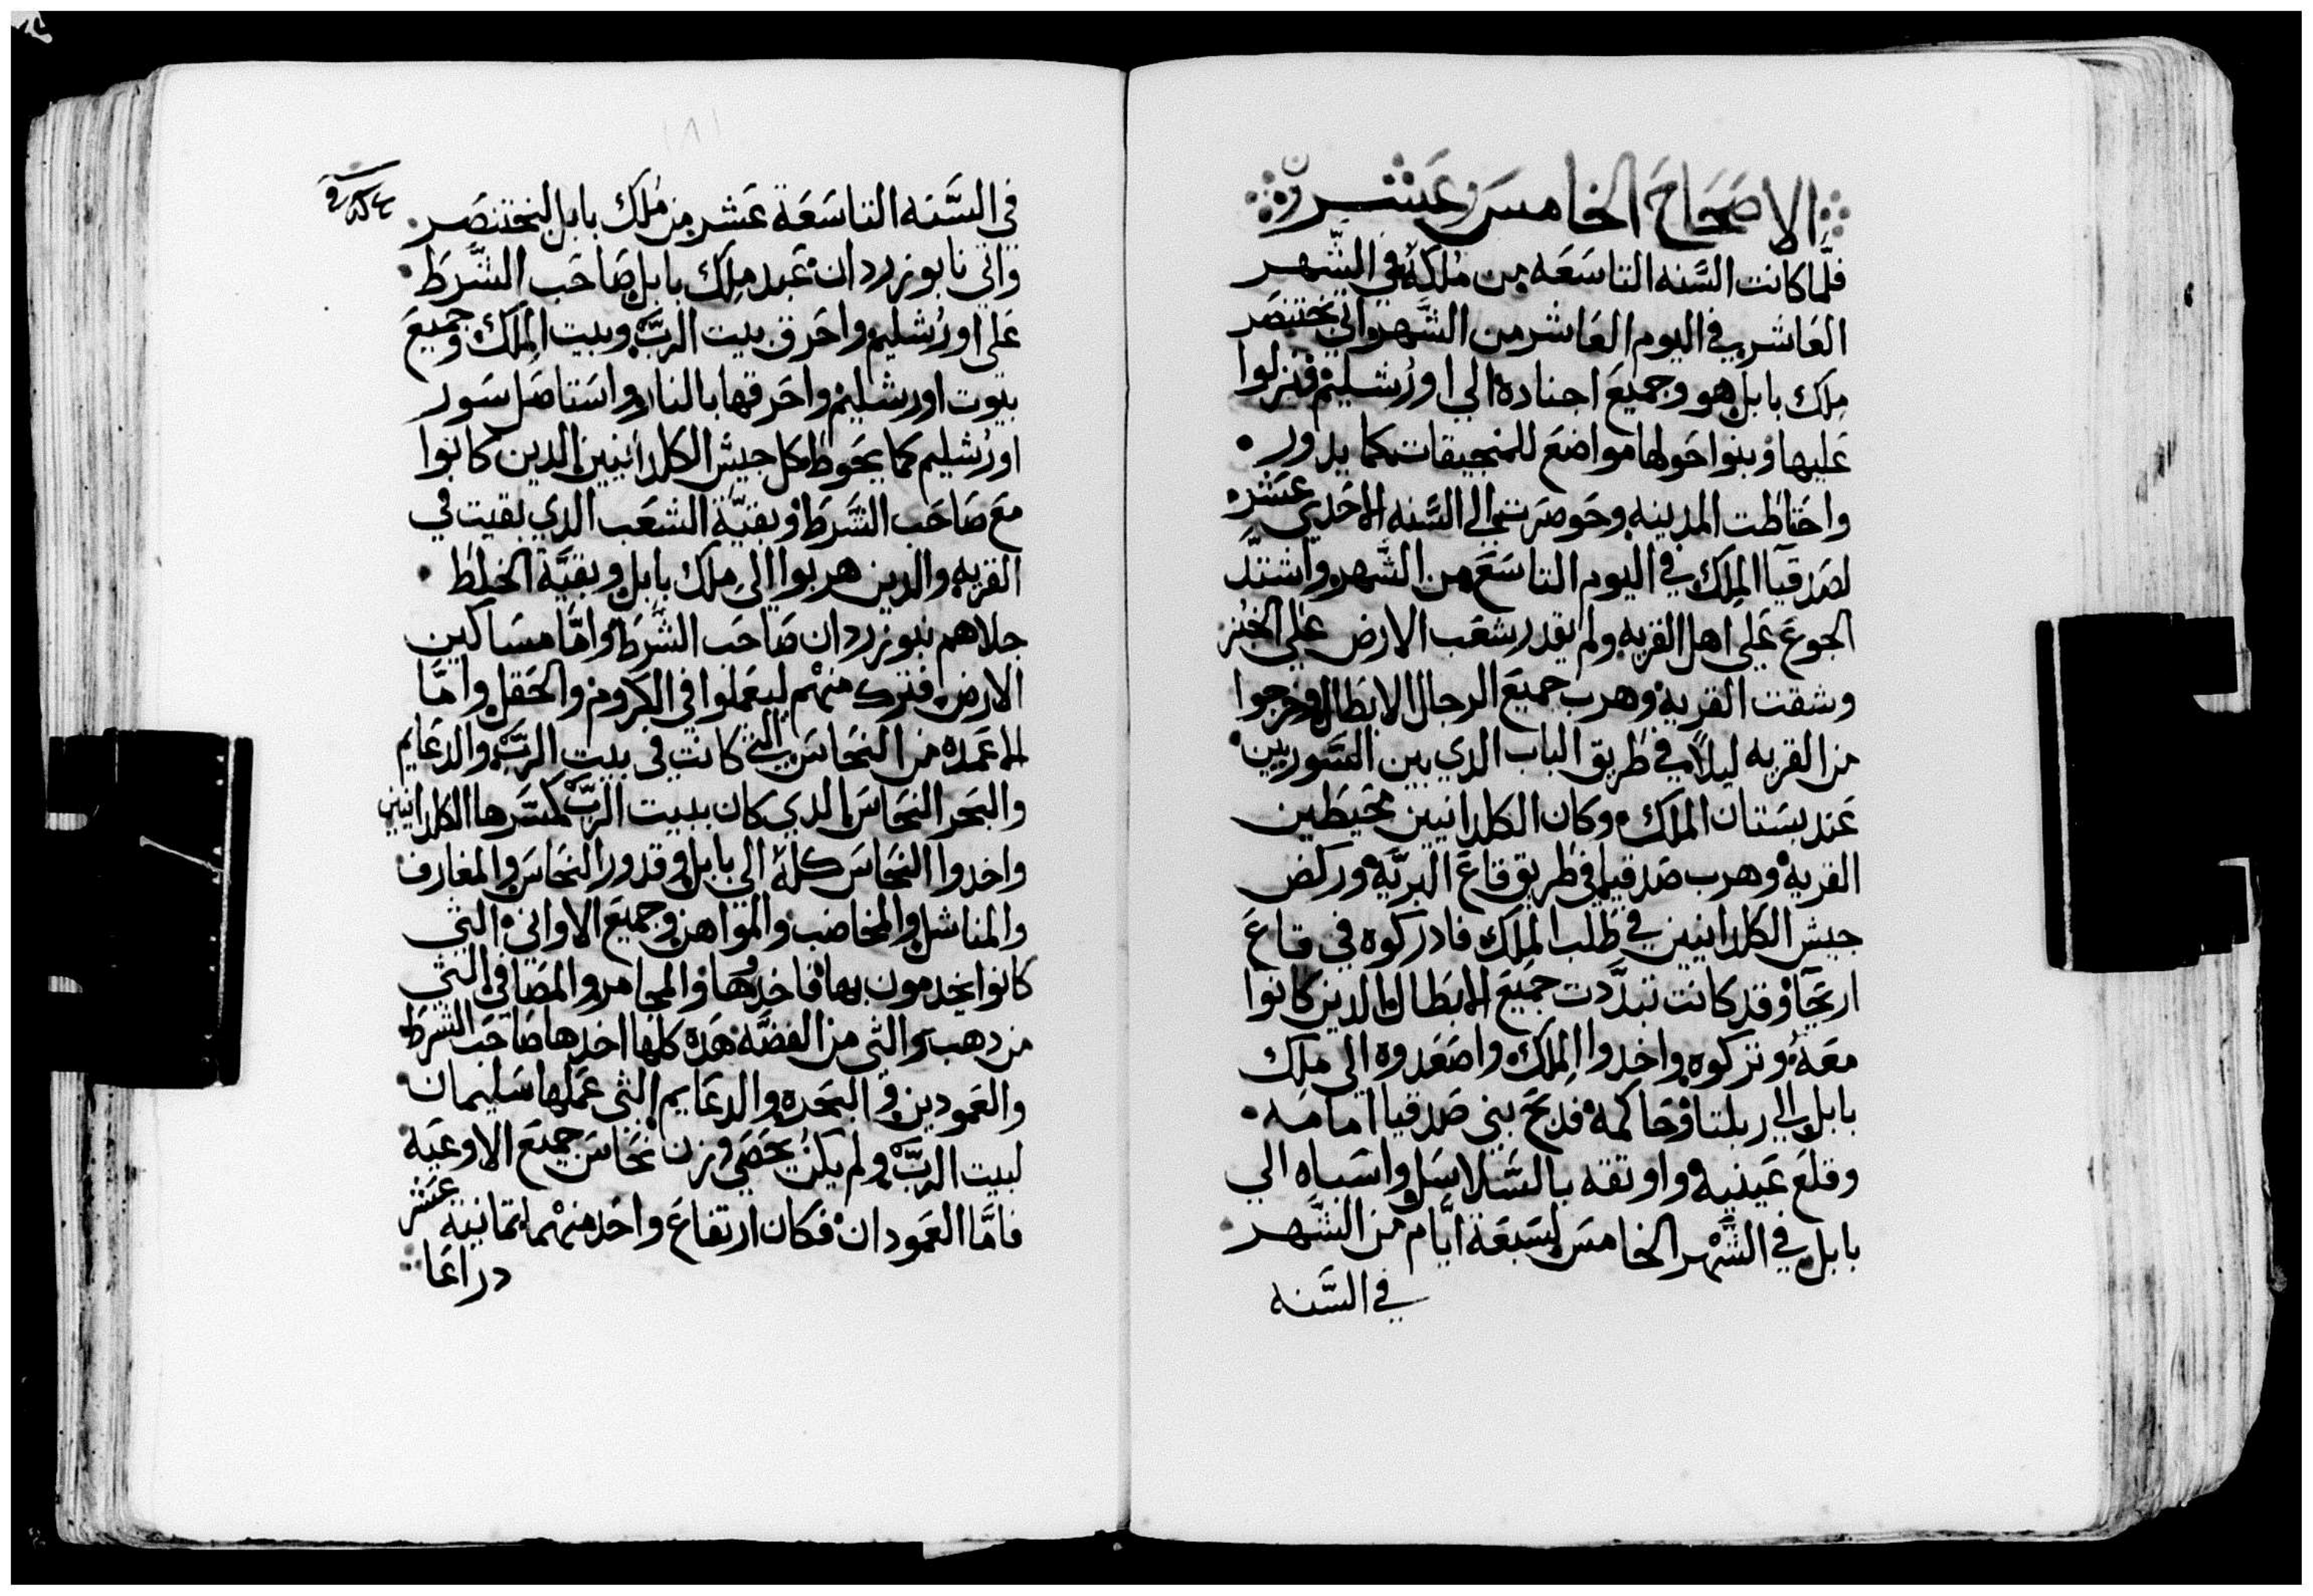 الاصَحَاحَ الخامسَ وعَشرن
فلَّما كانت السَّنه التاسَعَه من مُلكهُ في الشهر
العَاشر في اليوم العَاشر من الشَّهر واتي بختنصَر
مِلك بابل هو وجميعَ اجناده الي اورُشليم فنزلوا
عَليها وبنوا حَولها مواضعَ للمنجيقات كما يدور
واحَتاطت المدينه وحَوصَرت الي السَّنه الاحَدي عَشره
لصَدقيَّا الملِك في اليوم التاسَعَ من الشَّهر واشتدَّ
الجوعَ عَلي اهل القريه ولم يقدر شعَب الارض عَلي الخبُز
وشقت القريه وهرب جميعَ الرجال الابطَال وخرجوا
من القريه ليلاً في طَريق الباب الدي بين السَّورين
عَند بسَتان الملك وكان الكلدانيين محَيطَين
القريه وهرب صَدقيا في طَريق قاعَ البريَّه وركض
جيش الكلدانيين في طَلب الملِك فادركوه في قاعَ
اريحَا وقد كانت تبدَّدت جميَع الابطَال الدين كانوا
معَهُ وتركوه واخدوا الملِك واصَعَدوه الي ملِك
بابل الي ربلتا وحَاكمهُ فدبحَ بني صَدقيا امامه
وقلعَ عَينيه واوتقه بالسَّلاسَل واسَباه الي
بابل في الشَّهر الخامسَ لسَبعَة ايَّام من الشَّهر
في السَّنه
في السَّنه التاسَعَة عَشر من مُلك بابل لبختنصَر
واتي نابوزردان عَبد ملِك بابل صَاحَب الشَّرطَ
عَلي اورُشليم واحَرق بيت الربَّ وبيت الملِك وجميعَ
بيوت اورشليم واحَرقها بالنار واسَتاصَل سَور
اورُشليم كما يحَوطَ كل جيش الكلدانيين الدين كانوا
معَ صَاحَب الشَّرطَ وبقيَّة الشعَب الدي بقيت في
القريه والدين هربوا الي ملِك بابل وبقيَّة الخلطَ
جلاهم نبوزردان صَاحَب الشَّرطَ وامَّا مسَاكين
الارض فترك منهم ليعَملوا في الكروم والحَقل وامَّا
الاعَمده من النحَاسَ التي كانت في بيت الربَّ والدعَايم
والبحَر النحَاسَ الدي كان ببيت الربَّ كسَّرها الكلدانيين
واخدوا النحَاسَ كلهُ الي بابل وقدور النحَاسَ والمغارف
والمناشل والمخاضب والمواهن وجميعَ الاواني التي
كانوا يخدمون بها فاخدوها والمجامر والمصَافي التي
من دهب والتي من الفضَّه هَده كلها اخدها صَاحَب الشرطَ
والعَمودين والبحَره والدعَايم التي عَملها سَليمان
لبيت الربَّ ولم يكن يحَصَي وزن نحَاسَ جميعَ الاوعَيه
فامَّا العَمودان فكان ارتفاعَ واحَد منهما تمانية عَشر
دراعَا